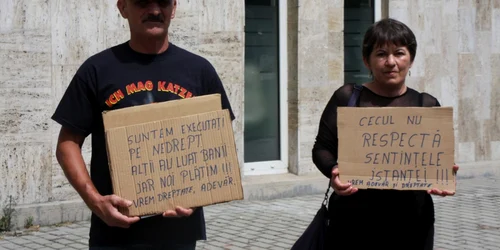 ICH MAG KATZEN
SUNTEM EXECUTAȚI
PE NEDREPT
ALȚII AU LUAT BANII
IAR NOI PLATIM !!!
VREM DREPTATE, ADEVĂR.
CECUL NU
RESPECTĂ
SENTINȚELE
ISTANȚEI !!!
VREM ADEVĂR ȘI DREPTATE